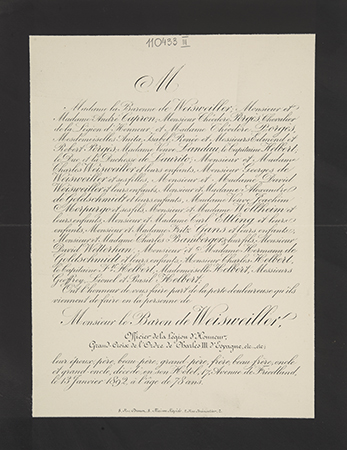 110433 III
M
Madame la Baronne de Weisweiller, Monsieur et
Madame André Capron, Monsieur Théodore Porgès Chevalier
de la Légion d'Honneur, et Madame Théodore Porgès,
Mesdemoiselles Anita, Isabel et Renée et Messieurs Edmond et
Robert Porgès, Madame Veuve Landau, le Capitaine Helbert,
le Duc et la Duchesse de Laurito, Monsieur et Madame
Charles Weisweiller et leurs enfants, Monsieur Georges de
Weisweiller et Monsieur et Madame David
Weisweiller et leurs enfants, Monsieur et Madame Alexandre
de Goldschmidt et leurs enfants, Madame Veuve Joachim
Morpurgo et ses fils, Monsieur et Madame Wellheim et
leurs enfants, Monsieur et Madame Paul Elting et leurs
enfants, Monsieur et Madame Fritz Gans et leurs enfants,
Monsieur et Madame Charles leurs fils, Monsieur
David Monsieur et Madame Hermann de
Goldschmidt et leurs enfants, Monsieur Charles Helbert,
le Capitaine F. Helbert, Mademoiselle Helbert, Messieurs
Geoffrey, Lionel et Basil Helbert,
Ont l'honneur de vous faire part de la perte douloureuse qu'ils
viennent de faire en la personne de
Monsieur le Baron de Weisweiller,
Officier de la Légion d'Honneur,
Grand Croix de l'Ordre de Charles III d'Espagne, etc., etc.,
leur époux, père, beau-père, grand-père, frère, beau-frère, oncle
et grand-oncle, décédé en son Hôtel, 17, Avenue de Friedland,
le 13 Janvier 1892, à l'âge de 78 ans.